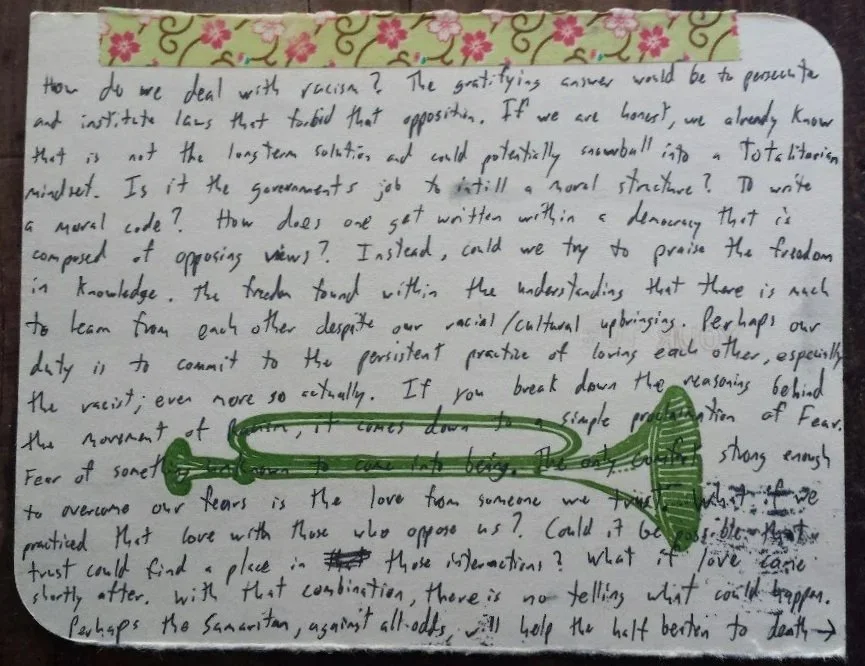 How do we deal with racism? The gratifying answer would be to persecute
and institute laws that forbid that opposition. If we are honest, we already know
that is not the longterm solution and could potentially snowball into a Totalitarian
mindset. Is it the governments job to intill a moral structure? To write
a moral code? How does one get written within a democracy that is
composed of opposing views? Instead, could we try to praise the freedom
in knowledge. The freedom found within the understanding that there is much
to learn from each other despite our racial/cultural upbringing. Perhaps our
duty is to commit to the persistent practice of loving each other, especially
the racist; even more so actually. If you break down the reasoning behind
the movement of Racism, it comes down to a simple proclamation of Fear.
Fear of something unknown to come into being. The only comfort strong enough
to overcome our fears is the love from someone we trust. What if we
practiced that love with those who oppose us? Could it be possible that
trust could find a place in those interactions? What if love came
shortly after. With that combination, there is no telling what could happen.
Perhaps the Samaritan, against all odds, will help the half beaten to death →